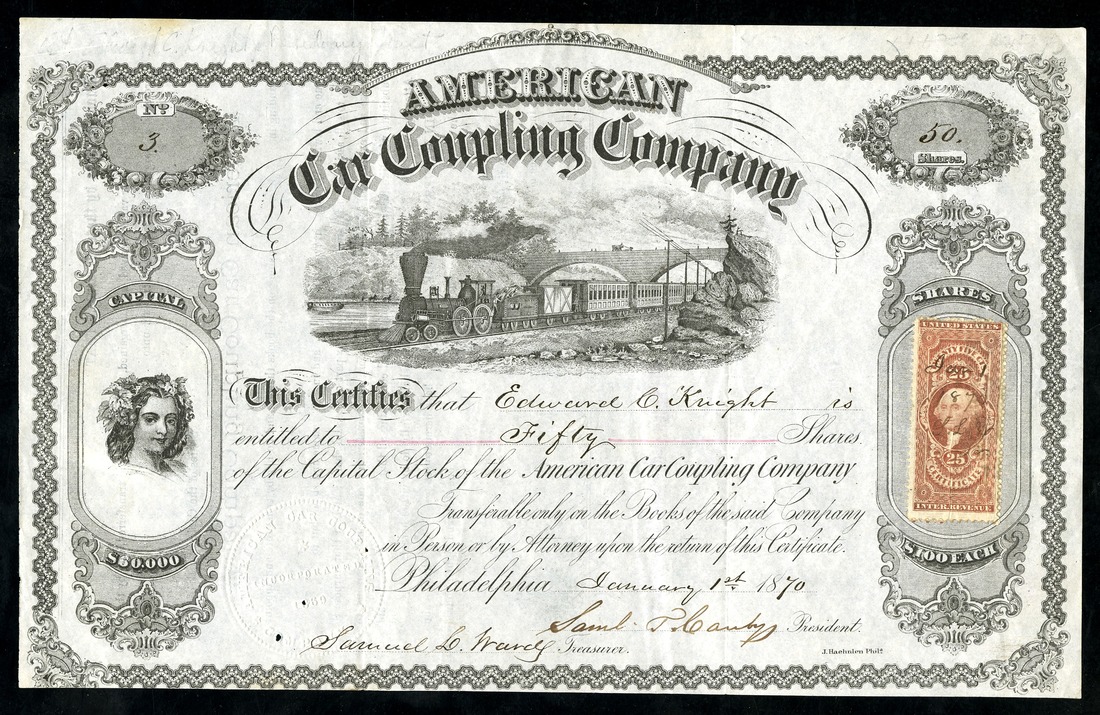 AMERICAN
Car Coupling Company
No.
3.
50.
Shares.
CAPITAL
SHARES
UNITED STATES
25
25
CERTIFICATE
INTER. REVENUE
This Certifies that Edward C. Knight is
entitled to Fifty Shares.
of the Capital Stock of the American Car Coupling Company
Transferable only on the Books of the said Company
in Person or by Attorney upon the return of this Certificate.
$60.000
$100 EACH
Philadelphia January 1st. 1870
Saml. T. Canby President.
Samuel L. Ward Treasurer.
J. Haehnlen Phila.